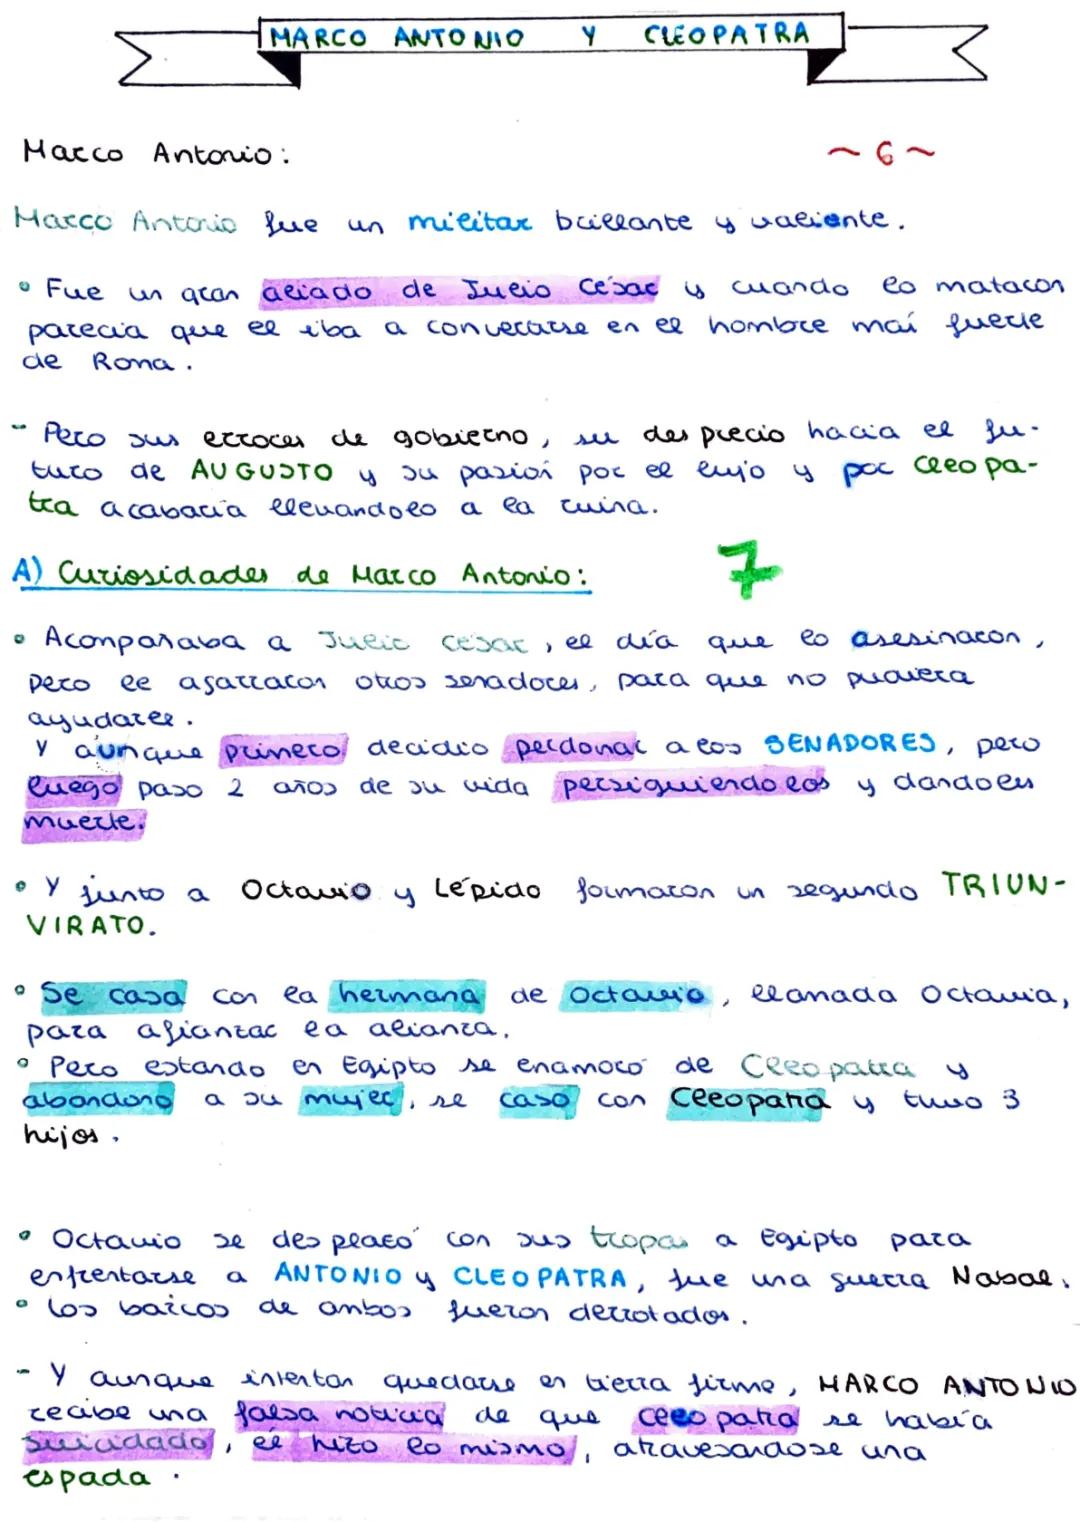 MARCO ANTONIO Y CLEOPATRA
Marco Antonio: ~ 6 ~
Marco Antonio fue un militar brillante y valiente.
• Fue un gran aliado de Julio César y cuando lo mataron
parecia que el iba a convertirse en el hombre maś fuerte
de Roma.
- Pero sus errores de gobierno, su desprecio hacia el fu-
turo de AUGUSTO y su pasioń por el lujo y por Cleopa-
tra acabaría llevandolo a la ruina.
A) Curiosidades de Marco Antonio: 7
• Acompañaba a Julio César, el día que lo asesinaron,
pero le agarraron otros senadores, para que no pudiera
ayudarle.
Y aunque primero decidio perdonar a los SENADORES, pero
luego paso 2 años de su vida persiguiendolos y dandoles
muerte.
• Y junto a Octavio y Lépido formaron un segundo TRIUN-
VIRATO.
• Se casa con la hermana de Octavio, llamada Octavia,
para afianzar la alianza.
• Pero estando en Egipto se enamoró de Cleopatra y
abandono a su mujer, se caso con Cleopatra y tuvo 3
hijos.
• Octavio se desplazó con sus tropas a Egipto para
enfrentarse a ANTONIO y CLEOPATRA, fue una guerra Nabal.
• Los barcos de ambos fueron derrotados.
- Y aunque intentan quedarse en tierra firme, MARCO ANTONIO
recibe una falsa noticia de que Cleopatra se había
suicidado, el hizo lo mismo, atravesandose una
espada.